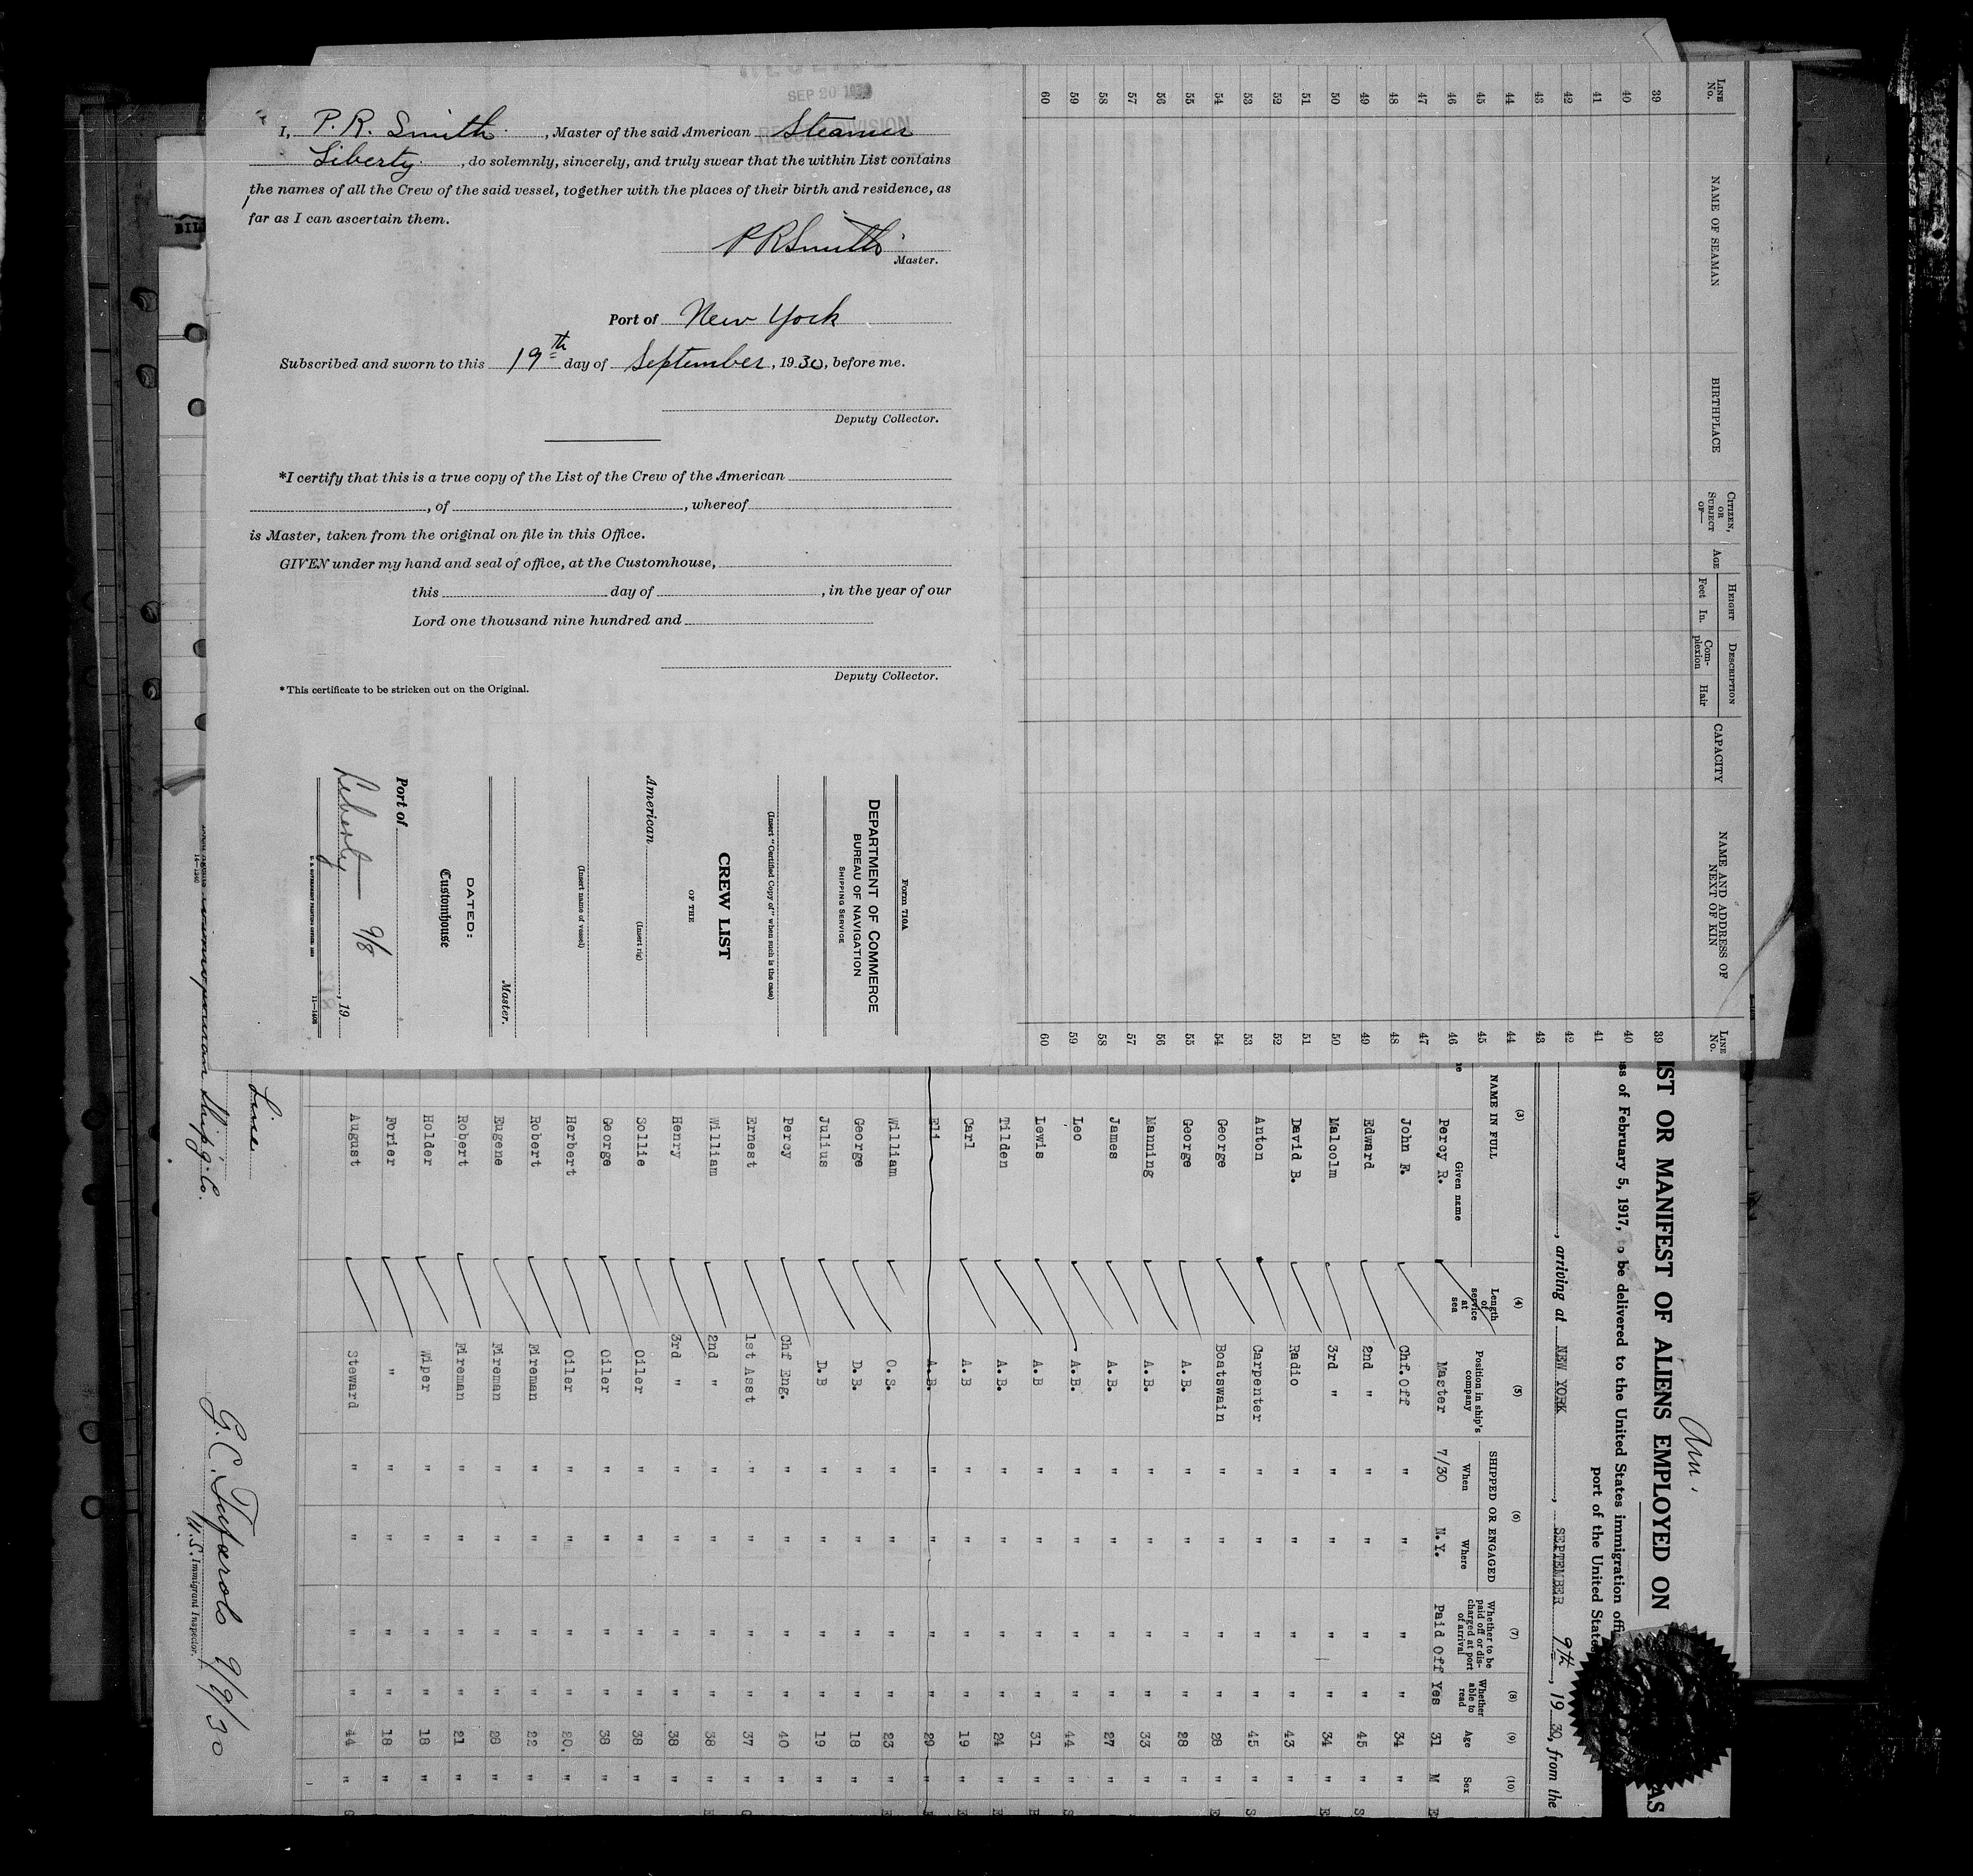 SEP 20 1930
RECORD DIVISION
I, P. R. Smith, Master of the said American Steamer
Liberty, do solemnly, sincerely, and truly swear that the within List contains
the names of all the Crew of the said vessel, together with the places of their birth and residence, as
far as I can ascertain them.
P R Smith
Master.
Port of New York
Subscribed and sworn to this 19th day of September, 1930, before me.
Deputy Collector.
*I certify that this is a true copy of the List of the Crew of the American
, of , whereof
is Master, taken from the original on file in this Office.
GIVEN under my hand and seal of office, at the Customhouse,
this day of , in the year of our
Lord one thousand nine hundred and
Deputy Collector.
*This certificate to be stricken out on the Original.
Form 710A
DEPARTMENT OF COMMERCE
BUREAU OF NAVIGATION
SHIPPING SERVICE
(Insert "Certified Copy of" when such is the case)
CREW LIST
OF THE
American
(Insert rig)
(Insert name of vessel)
Master.
DATED:
Customhouse
Port of
Liberty 9/8 , 19
U. S. GOVERNMENT PRINTING OFFICE
LINE No. NAME OF SEAMAN BIRTHPLACE CITIZEN, OR SUBJECT OF— AGE HEIGHT Feet In. DESCRIPTION Complexion Hair CAPACITY NAME AND ADDRESS OF NEXT OF KIN LINE No.
39 39
40 40
41 41
42 42
43 43
44 44
45 45
46 46
47 47
48 48
49 49
50 50
51 51
52 52
53 53
54 54
55 55
56 56
57 57
58 58
59 59
60 60
Am.
IST OR MANIFEST OF ALIENS EMPLOYED ON AS
ss of February 5, 1917, to be delivered to the United States immigration offi
port of the United States
, arriving at NEW YORK, SEPTEMBER 9th, 1930, from the
(3) (4) (5) (6) (7) (8) (9) (10)
NAME IN FULL Given name Length of service at sea Position in ship's company SHIPPED OR ENGAGED When Where Whether to be paid off or discharged at port of arrival Whether able to read Age Sex
Percy R. Master 7/30 N.Y. Paid Off Yes 31 M
John F. Chf.Off " " " " 34 "
Edward 2nd " " " " " 45 "
Malcolm 3rd " " " " " 34 "
David B. Radio " " " " 43 "
Anton Carpenter " " " " 45 "
George Boatswain " " " " 28 "
George A.B. " " " " 28 "
Manning A.B. " " " " 33 "
James A.B. " " " " 27 "
Leo A.B. " " " " 44 "
Lewis A.B " " " " 31 "
Tilden A.B. " " " " 24 "
Carl A.B " " " " 19 "
Eli A.B. " " " " 29 "
William O.S. " " " " 23 "
George D.B. " " " " 18 "
Julius D.B " " " " 19 "
Percy Chf Eng. " " " " 40 "
Ernest 1st Asst " " " " 37 "
William 2nd " " " " " 38 "
Henry 3rd " " " " " 38 "
Sollie Oiler " " " " 38 "
George Oiler " " " " 38 "
Herbert Oiler " " " " 20. "
Robert Fireman " " " " 22 "
Eugene Fireman " " " " 28 "
Robert Fireman " " " " 21 "
Holder Wiper " " " " 18 "
Forier " " " " " 18 "
August Steward " " " " 44 "
Line
Ship'g. Co.
9/9/30
U.S. Immigrant Inspector.